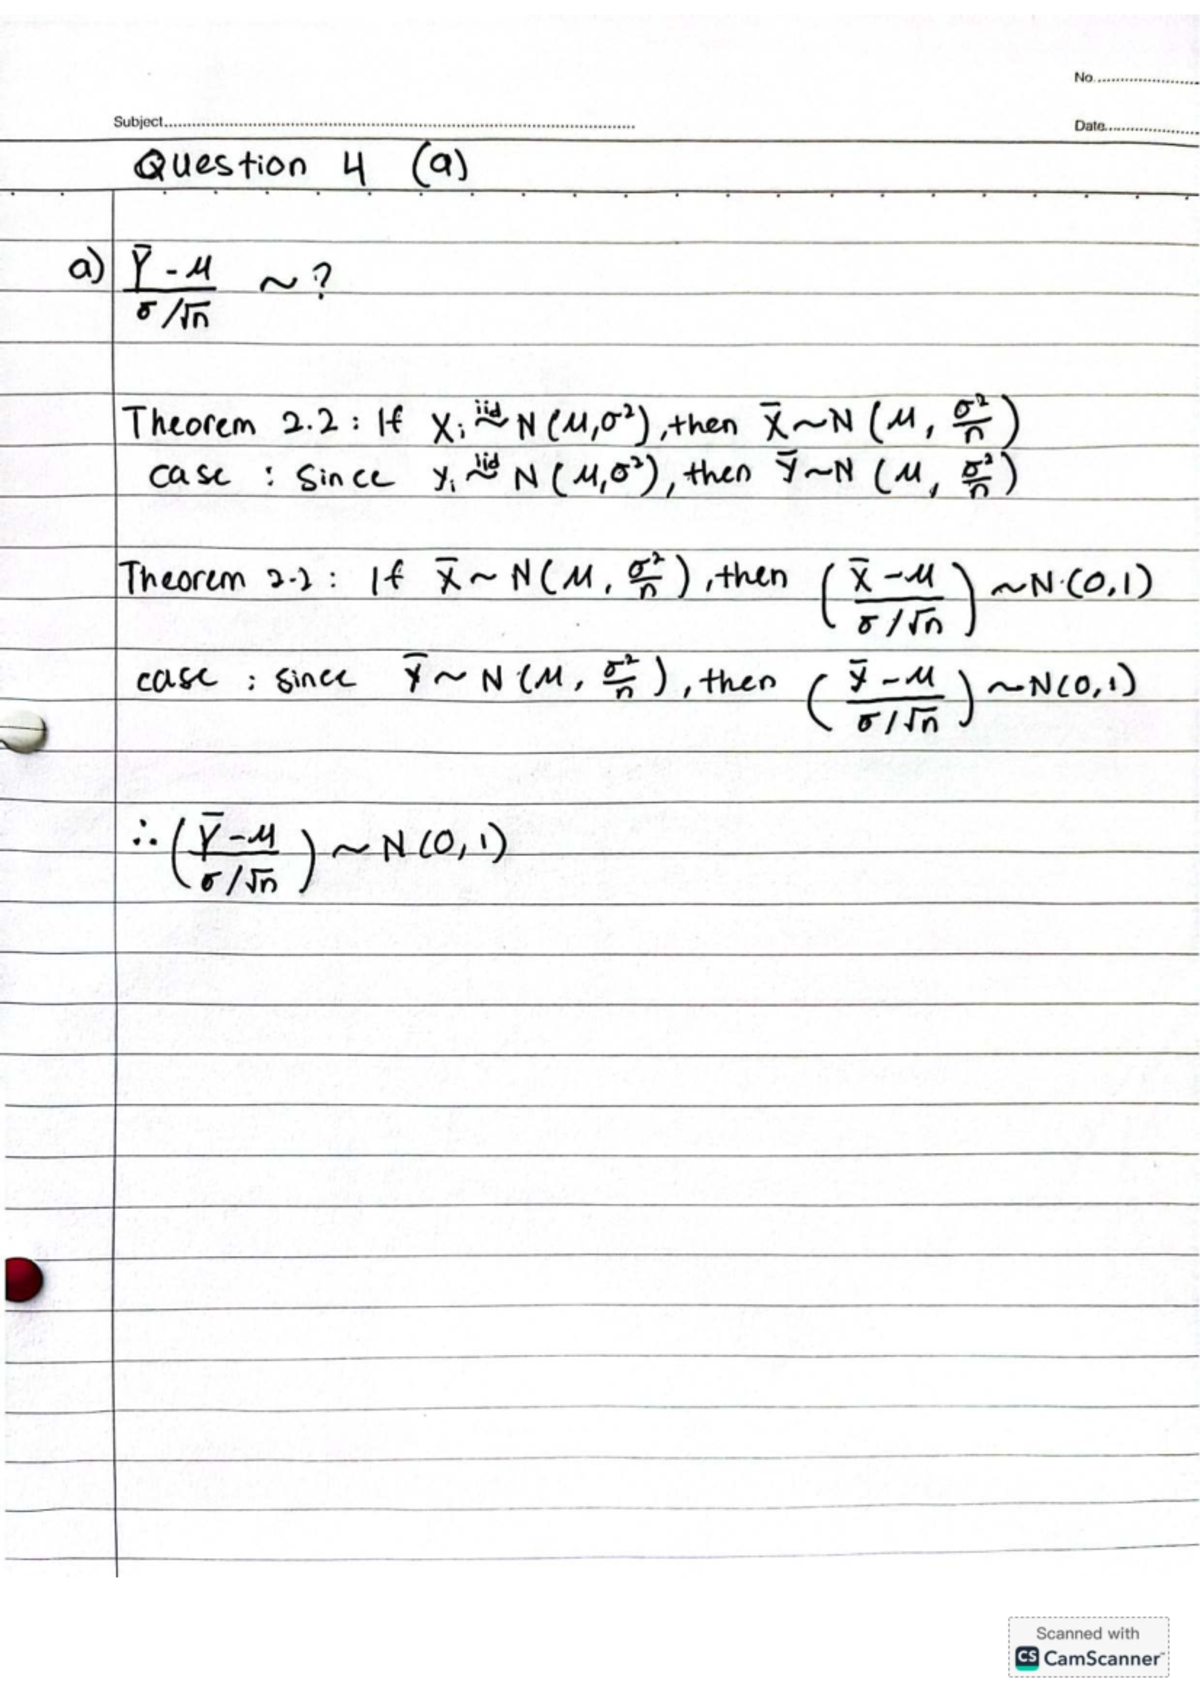 No.
Subject
Date
Question 4 (a)
a) Ȳ - μ / σ/√n ~ ?
Theorem 2.2 : If Xᵢ iid~ N(μ,σ²), then X̄~N(μ, σ²/n)
case : Since Yᵢ iid~ N(μ,σ²), then Ȳ~N(μ, σ²/n)
Theorem 2.2 : If X̄~N(μ, σ²/n), then (X̄-μ / σ/√n) ~N(0,1)
case : since Ȳ~N(μ, σ²/n), then (Ȳ-μ / σ/√n) ~N(0,1)
∴ (Ȳ-μ / σ/√n) ~N(0,1)
Scanned with
CS CamScanner